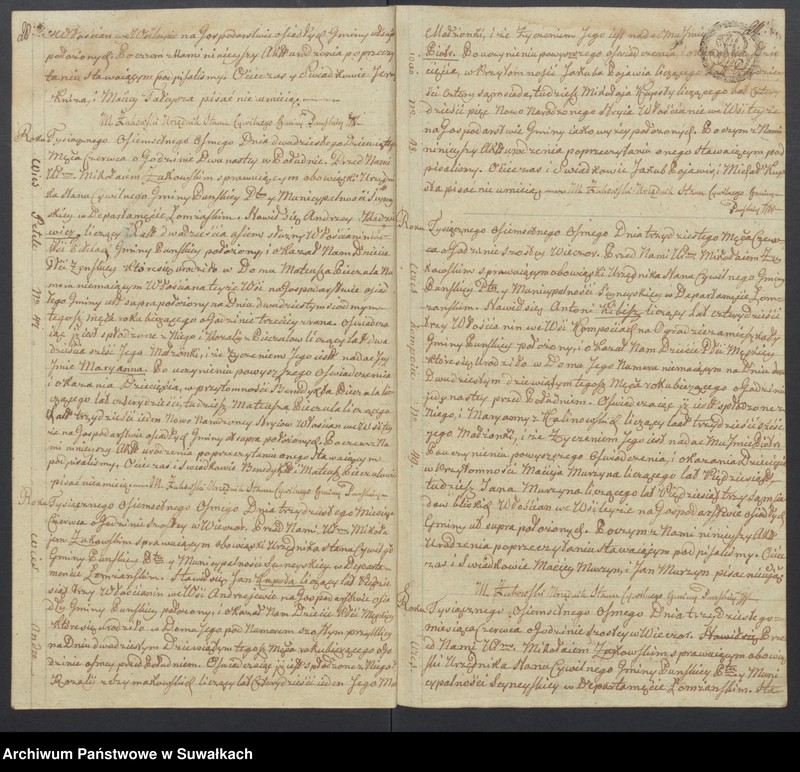 położonych Poczem z Nami ninieyszy Akt urodzenia po przeczy
taniu stawaiącym podpisaliśmy Ociec zas y Swiadkowie Jerzy
i Maciey pisać nie umieią
M. Żukowski Urzędnik Stanu Cywilnego Gminy Puńskiey
Roku Tysiącznego Osmsetnego Osmego Dnia dwudziestego
Męca Czerwca o Godzinie Dwunastey w Południe. Przed Nami
Mikołaiem Żukowskim sprawuiącym obowiązki Urzęd
nika Stanu Cywilnego Gminy Puńskiey Ptu y Municypalnosci Seyneń
skiey w Departamęcie Łomżanskim. Stawił się Andrzey
liczący Lat dwadzieścia osiem służny Włościanin
Gminy Puńskiey położoney, i okazał Nam Dziecie
Płci Zenskiey które się urodziło w Domu Mateusza Pieczala
Włościana teyże Wsi na Gospodarstwie osiad
łego Gminy ut supra położoney na Dniu dwudziestym siodmym
tegosz Męca roku bieżącego o Godzinie trzeciey z rana. Oswiadcza
iąc iż iest spłodzone z Niego i Rozalij z Pieczalow liczącey lat dwa
dzieścia sześć Jego Małżonki, i że życzeniem Jego iest nadać Jey
Jmie Maryanna. Po uczynieniu powyższego oświadczenia
i okazania Dziecięcia, w przytomności Benedykta Pieczala li
czącego lat czterdzieści, tudziesz Mateusza Pieczala liczącego
Lat trzydzieści ieden Nowo Narodzoney Stryiów Włościan we Wsi
na Gospodarstwie osiadłych Gminy ut supra położonych. Poczem z Na
mi ninieyszy Akt urodzenia po przeczytaniu onego stawaiącym
podpisaliśmy. Ociec zas i Swiadkowie Benedykt i Mateusz Pieczalowie
pisać nie umieią M. Żukowski Urzędnik Stanu Cywilnego Gminy Puńskiey
Roku Tysiącznego Osmsetnego Osmego Dnia trzydziestego Miesiąca
Czerwca o Godzinie Szostey w Wieczor. Przed Nami Mikoła
iem Żukowskim sprawuiącym obowiązki Urzędnika Stanu Cywilnego
Gminy Puńskiey Ptu y Municypalnosci Seyneyskiey w Departa
mencie Łomżanskim. Stawił się Jan liczący lat
siąt trzy Włościanin we Wsi Andrzeiewie na Gospodarstwie osia
dły Gminy Puńskiey położoney i okazał Nam Dziecie Płci Męzkiey
które się urodziło w Domu Jego pod Namerem szostym przyszłey
na Dniu dwudziestym Dziewiątym tegosz Męca roku bieżącego o Go
dzinie osmey przed Południem. Oswiadczaiąc iż iest spłodzone z Niego i
Rozalij liczącey lat czterdzieści ieden Jego Ma
Wieś
No 47
Małżonki, i że życzeniem Jego iest nadać mu Jmie
Piotr. Po uczynieniu powyższego oświadczenia i okazania Dzie
cięcia, w Przytomności Jakuba Poiawia liczącego
ści cztery sąsiada, tudziesz Mikołaia liczącego lat czter
dzieści pięc Nowo Narodzonego Stryia Włościan we Wsi teyże
na Gospodarstwie Gminy iako wyżey położonych. Poczym z Nami
ninieyszy Akt urodzenia po przeczytaniu onego stawaiącym pod
pisaliśmy. Ociec zas i Swiadkowie Jakub Poiawis, i Mikołay
pisać nie umieią M. Żukowski Urzędnik Stanu Cywilnego Gminy
Puńskiey
Roku Tysiącznego Osmsetnego Osmego Dnia trzydziestego Męca Czerw
ca o Godzinie Szostey Wieczor. Przed Nami Mikołaiem Żu
kowskim sprawuiącym obowiązki Urzędnika Stanu Cywilnego Gminy
Puńskiey Ptu y Municypalnosci Seyneyskiey w Departamęcie Łom
żanskim. Stawił się Antoni liczący Lat czterdzieści
trzy Włościanin we Wsi w Ogrodzie zamieszkały
Gminy Puńskiey położoney, i okazał Nam Dziecie Płci Męzkiey
które się urodziło w Domu Jego Namera niemaiącym na Dniu
Dwudziestym dziewiątym tegosz Męca roku bieżącego o Godzinie
iedynastey przed Południem. Oswiadczaiąc iż iest spłodzone z
Niego, i Maryanny z Kalinowskich liczącey lat trzydzieści sześc
Jego Małżonki, i że życzeniem Jego iest nadać mu Jmie Piotr.
Po uczynieniu powyższego Oswiadczenia, i okazania Dziecięcia
w Przytomności Macieja Murzyna liczącego lat Pięćdziesiąt,
tudziesz Jana Murzyna liczącego lat Pięćdziesiąt trzy Sąsia
dow bliskich Włościan we Wsi teyże na Gospodarstwie osiadłych
Gminy ut supra położonych. Poczym z Nami ninieyszy Akt
Urodzenia po przeczytaniu stawaiącym podpisaliśmy. Ociec
zas i Swiadkowie Maciey Murzyn, i Jan Murzyn pisać nie umieią
M. Żukowski Urzędnik Stanu Cywilnego Gminy Puńskiey
Roku Tysiącznego Osmsetnego Osmego Dnia trzydziestego
miesiąca Czerwca o Godzinie Szostey w Wieczor. Prze
d Nami Mikołaiem Żukowskim sprawuiącym obowiąz
ki Urzędnika Stanu Cywilnego Gminy Puńskiey Ptu y Muni
cypalności Seyneyskiey w Departamęcie Łomżanskim. Sta
Archiwum Państwowe w Suwałkach